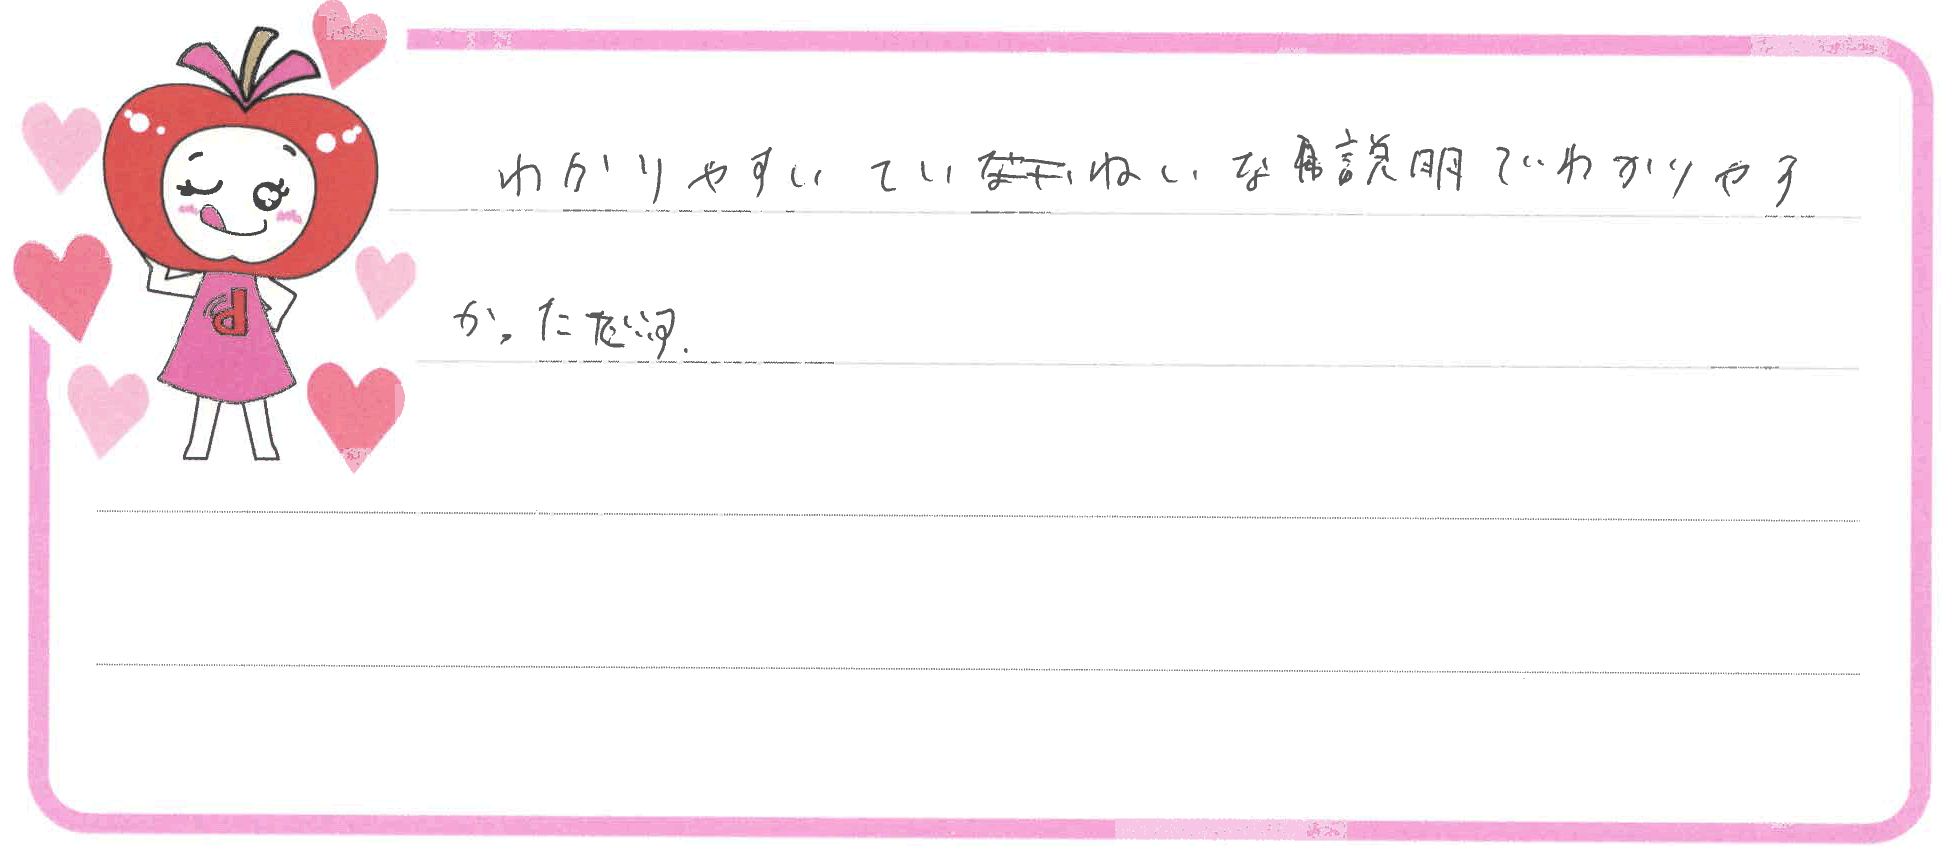 わかりやすいていねいな説明でわかりやす
かったです。
d